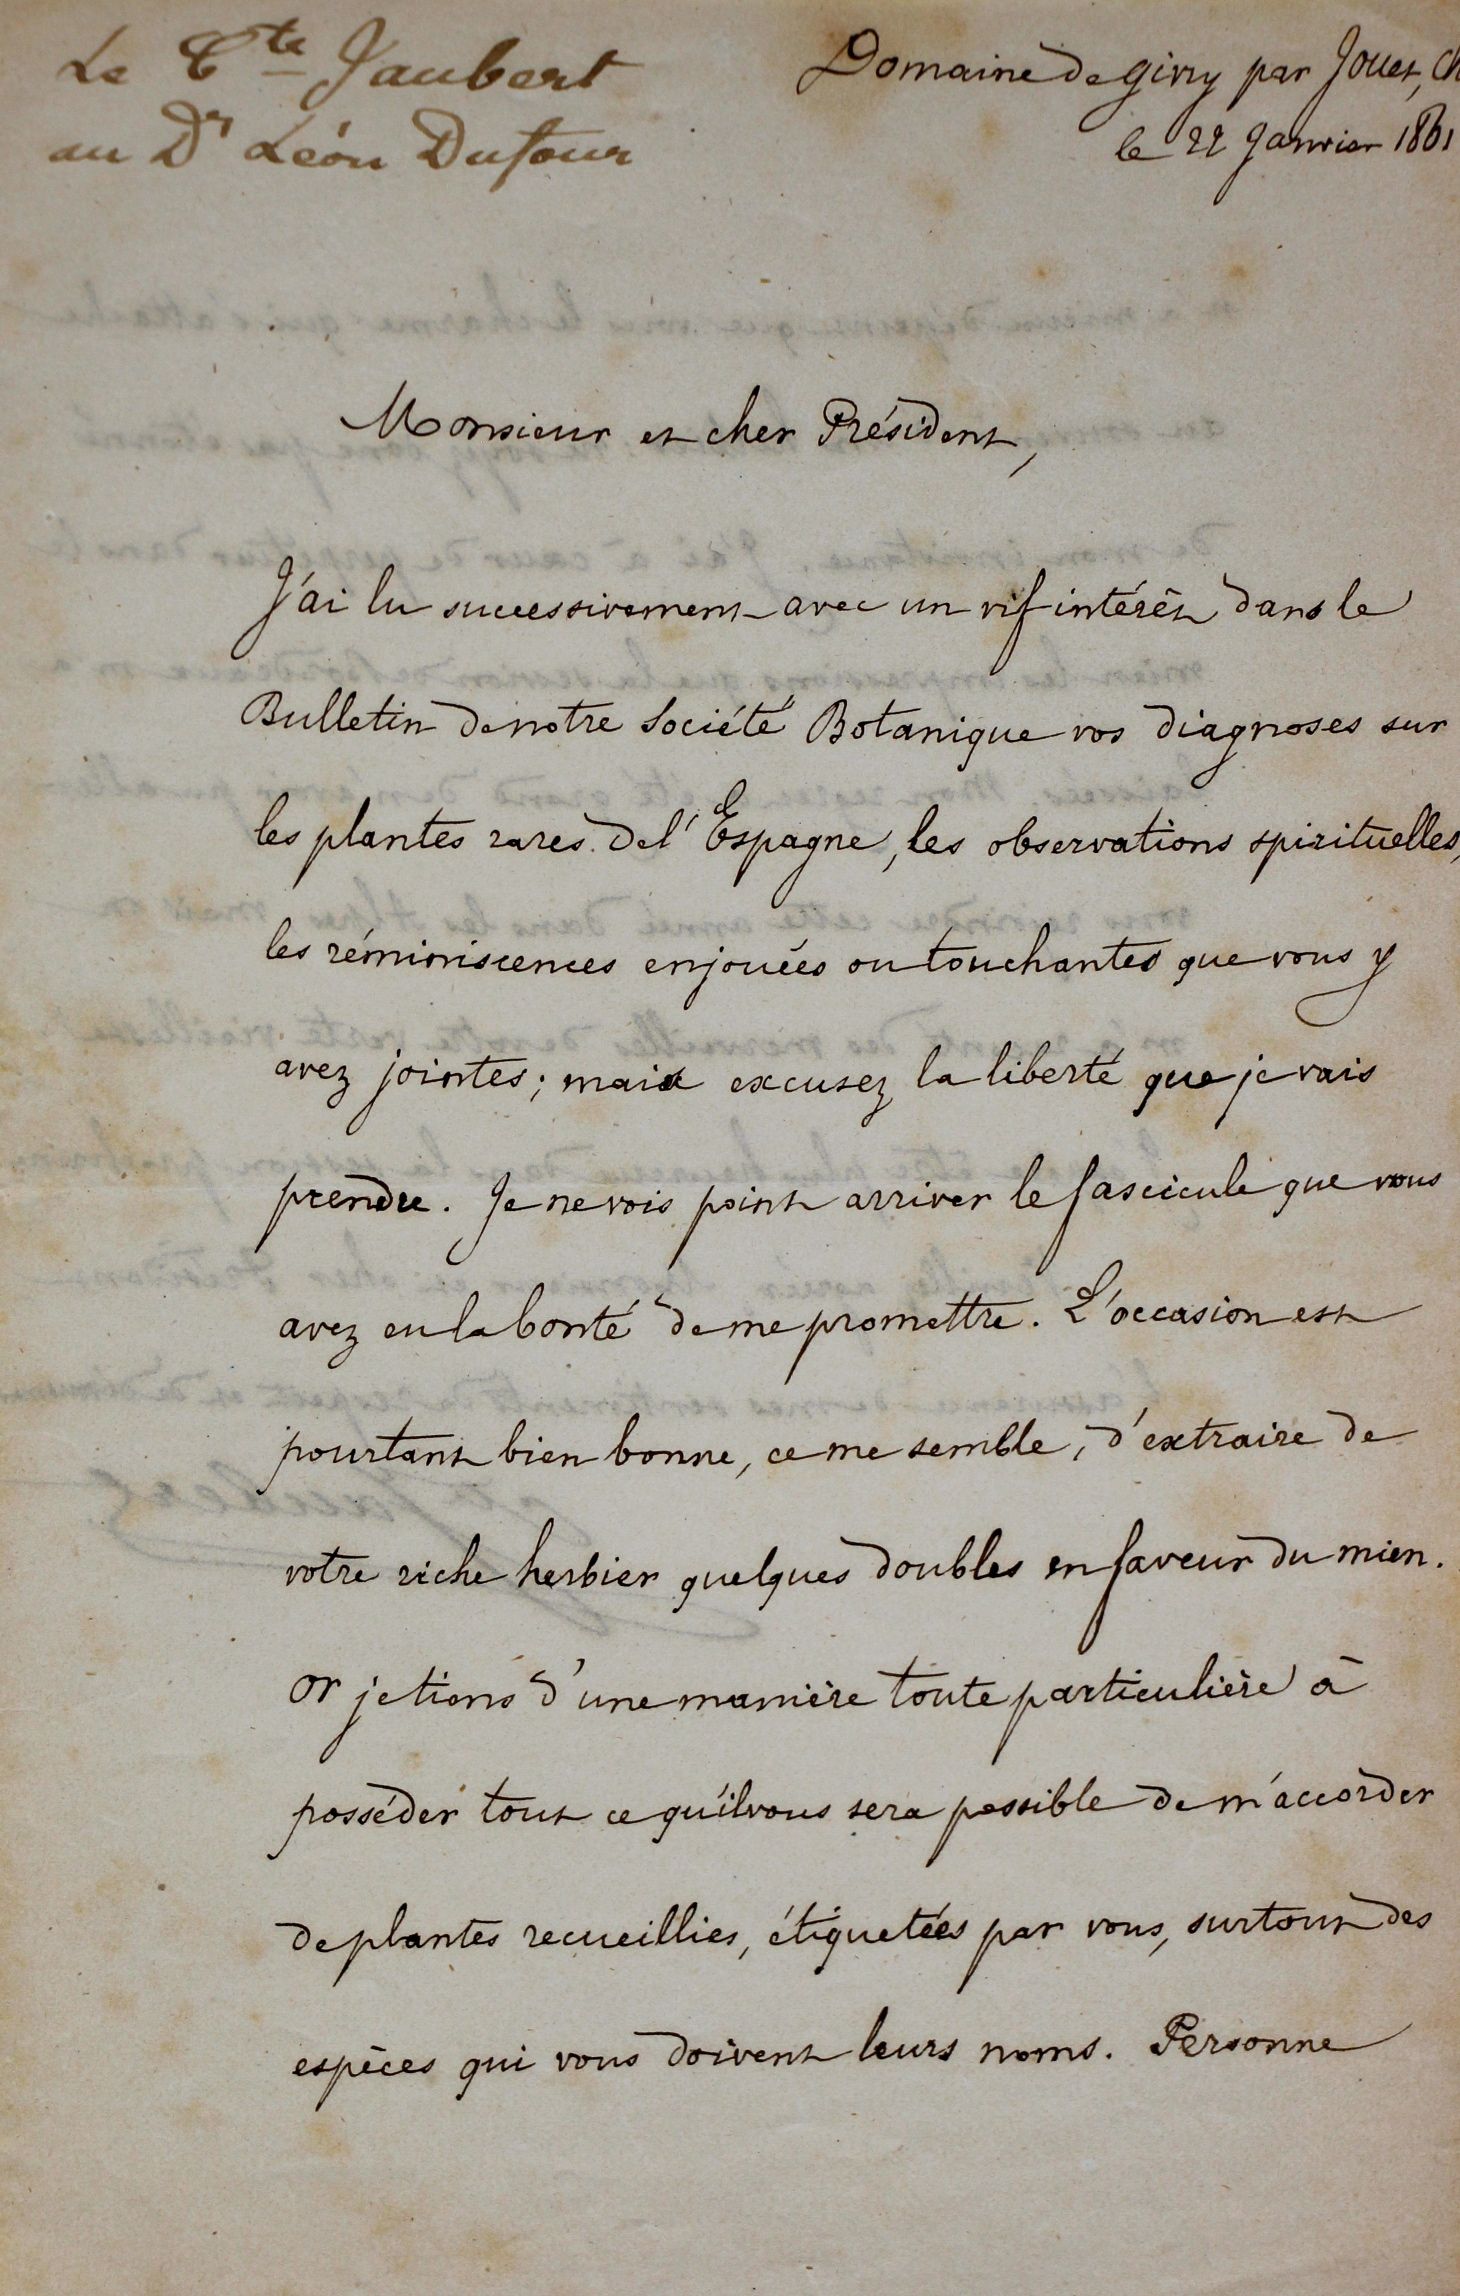 Le Cte Jaubert
au Dr Léon Dufour
Domaine de Givry par Jouet, Ch
le 22 Janvier 1861
Monsieur et cher Président,
J'ai lu successivement avec un vif intérêt dans le
Bulletin de notre Société Botanique vos diagnoses sur
les plantes rares de l'Espagne, les observations spirituelles,
les réminiscences enjouées ou touchantes que vous y
avez jointes; mais excusez la liberté que je vais
prendre. Je ne vois point arriver le fascicule que vous
avez eu la bonté de me promettre. L'occasion est
pourtant bien bonne, ce me semble, d'extraire de
votre riche herbier quelques doubles en faveur du mien.
Or je tiens d'une manière toute particulière à
posséder tout ce qu'il vous sera possible de m'accorder
de plantes recueillies, étiquetées par vous, surtout des
espèces qui vous doivent leurs noms. Personne